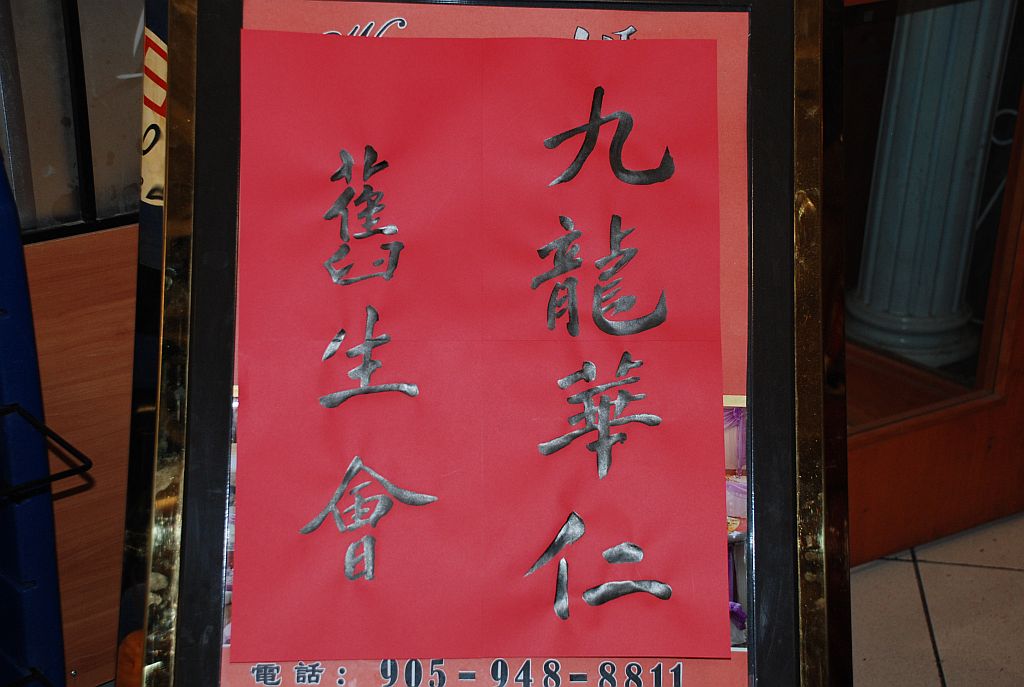 九龍華仁
舊生會
電話: 905-948-8811